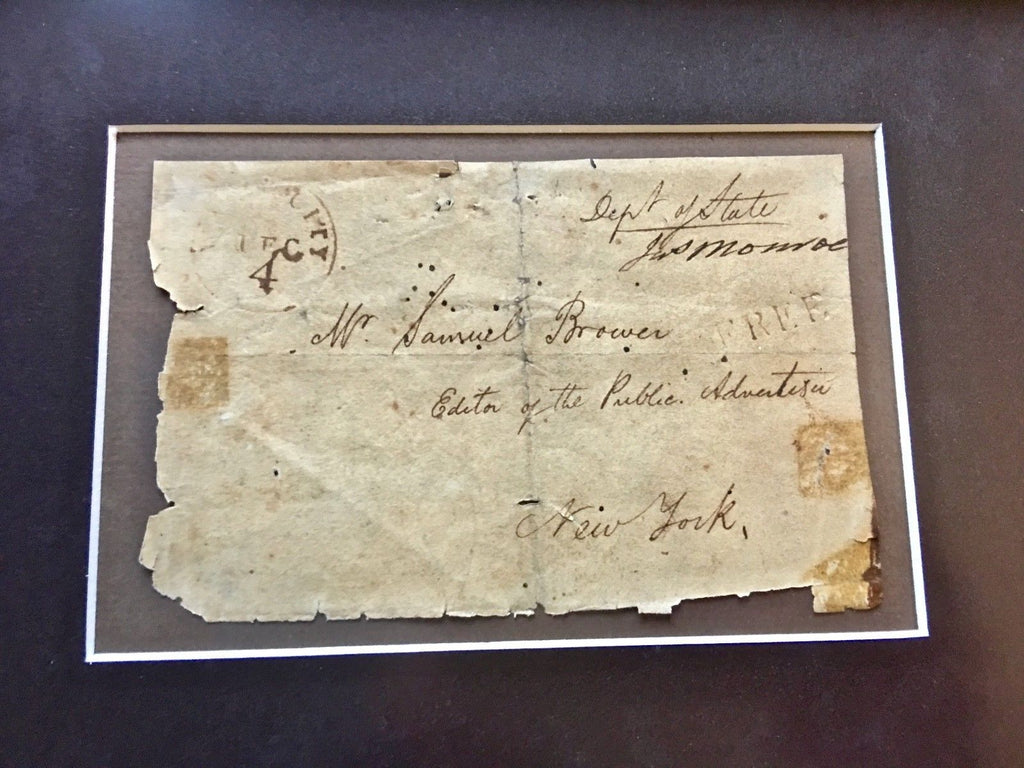 Dept of State
Jas Monroe
DEC
4
FREE
Mr. Samuel Brower
Editor of the Public Advertiser
New York,